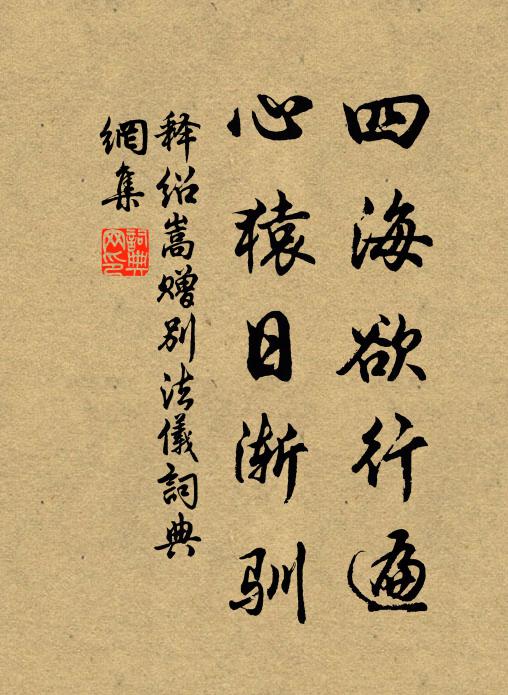 四海欲行遍
心猿日渐驯
释绍嵩赠别法仪词典
網集
詞典
网印